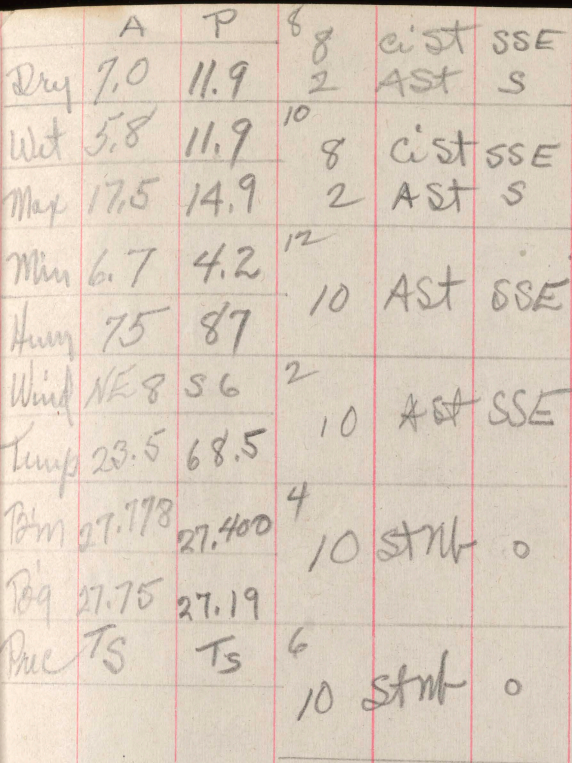 A P
Dry 7.0 11.9
Wet 5.8 11.9
Max 17.5 14.9
Min 6.7 4.2
Hum 75 87
Wind NE 8 S 6
Temp 23.5 68.5
Bm 27.778 27.400
Bg 27.75 27.19
Prec Ts Ts
8
8 Ci St SSE
2 ASt S
10
8 Ci St SSE
2 ASt S
12
10 ASt SSE
2
10 ASt SSE
4
10 St Nb o
6
10 St Nb o